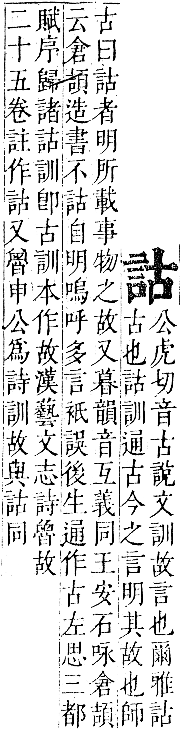 詁
公虎切音古說文訓故言也爾雅詁
古也詁訓通古今之言明其故也師
古曰詁者明所載事物之故又暮韻音互義同王安石咏倉頡
云倉頡造書不詁自明嗚呼多言袛誤後生通作古左思三都
賦序歸諸詁訓卽古訓本作故漢藝文志詩魯故
二十五卷註作詁又魯申公爲詩訓故與詁同